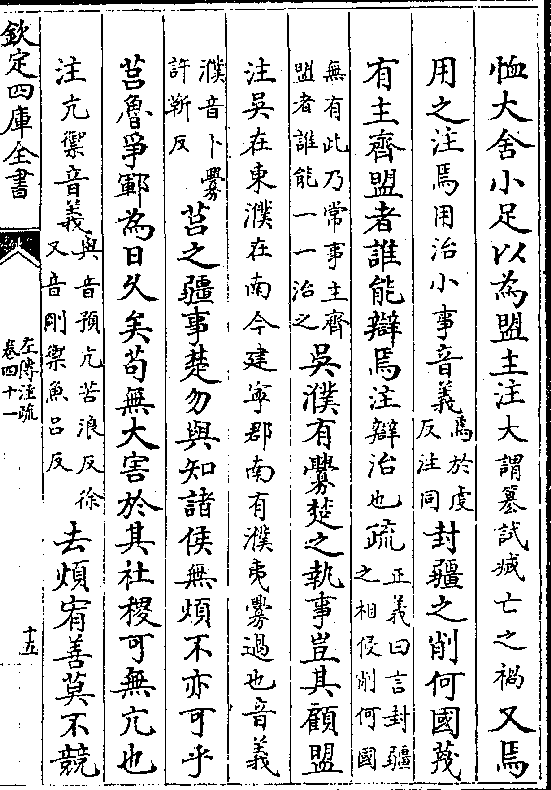 恤大舍小足以為盟主注大謂篡弑滅亡之禍又焉
用之注焉用治小事音義焉於虔反注同封疆之削何國蔑
有主齊盟者誰能辯焉注辯治也疏正義曰言封疆之相侵削何國
無有此乃常事主齊盟者誰能一一治之吳濮有釁楚之執事豈其顧盟
注吳在東濮在南今建寧郡南有濮夷釁過也音義
濮音卜釁許靳反莒之疆事楚勿與知諸侯無煩不亦可乎
莒魯爭鄆為日久矣苟無大害於其社稷可無亢也
注亢禦音義與音預亢苦浪反徐又音剛禦魚呂反去煩宥善莫不競
欽定四庫全書
左傳注疏
卷四十一
十五